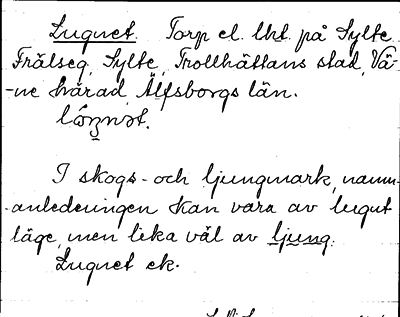 Lugnet. Torp el. lht. på Sylte
Frälseg, Sylte, Trollhättans stad, Vä-
-ne härad, Älfsborgs län.
I skogs- och ljungmark, namn-
-anledningen kan vara av lugnt
läge, men lika väl av ljung.
Lugnet ek.